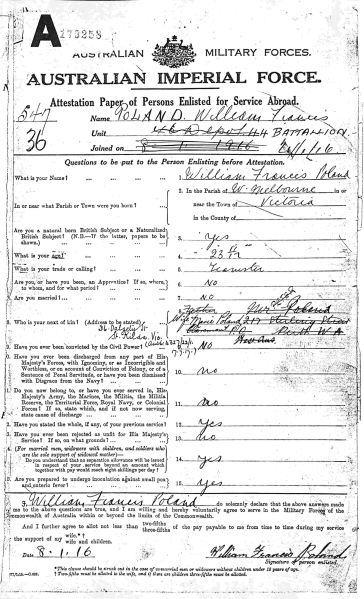 A 175258
AUSTRALIAN MILITARY FORCES.
AUSTRALIAN IMPERIAL FORCE.
Attestation Paper of Persons Enlisted for Service Abroad.
547
36
Name POLAND. William Francis
Unit 44 BATTALION.
Joined on 8 1 1916
Questions to be put to the Person Enlisting before Attestation.
1. What is your Name? 1. William Francis Poland
2. In or near what Parish or Town were you born? 2. In the Parish of W. Melbourne
in or near the Town of Victoria
in the County of
3. Are you a natural born British Subject or a Naturalized British Subject? (N.B.—If the latter, papers to be shown). 3. Yes
4. What is your age? 4. 23
5. What is your trade or calling? 5. Teamster
6. Are you, or have you been, an Apprentice? If so, where, to whom, and for what period? 6. No
7. Are you married? 7. No
8. Who is your next of kin? (Address to be stated) 8. Father
Wife
Poland
St Kilda. Vic.
W.A.
9. Have you ever been convicted by the Civil Power?
10. Have you ever been discharged from any part of His Majesty's Forces, with Ignominy, or as Incorrigible and Worthless, or on account of Conviction of Felony, or of a Sentence of Penal Servitude, or have you been dismissed with Disgrace from the Navy? 10. no
11. Do you now belong to, or have you ever served in, His Majesty's Army, the Marines, the Militia, the Militia Reserve, the Territorial Force, Royal Navy, or Colonial Forces? If so, state which, and if not now serving, state cause of discharge 11. no
12. Have you stated the whole, if any, of your previous service? 12. yes
13. Have you ever been rejected as unfit for His Majesty's Service? If so, on what grounds? 13. no
14. (For married men, widowers with children, and soldiers who are the sole support of widowed mother)—
Do you understand that no separation allowance will be issued in respect of your service beyond an amount which together with pay would reach eight shillings per day? 14. yes
15. Are you prepared to undergo inoculation against small pox and enteric fever? 15. yes
I, William Francis Poland do solemnly declare that the above answers made
by me to the above questions are true, and I am willing and hereby voluntarily agree to serve in the Military Forces of the
Commonwealth of Australia within or beyond the limits of the Commonwealth.
And I further agree to allot not less than two-fifths three-fifths of the pay payable to me from time to time during my service
for the support of my wife.* wife and children.†
Date 8.1.16 William Francis Poland
Signature of person enlisted.
*This clause should be struck out in the case of unmarried men or widowers without children under 18 years of age.
†Two-fifths must be allotted to the wife, and if there are children three-fifths must be allotted.